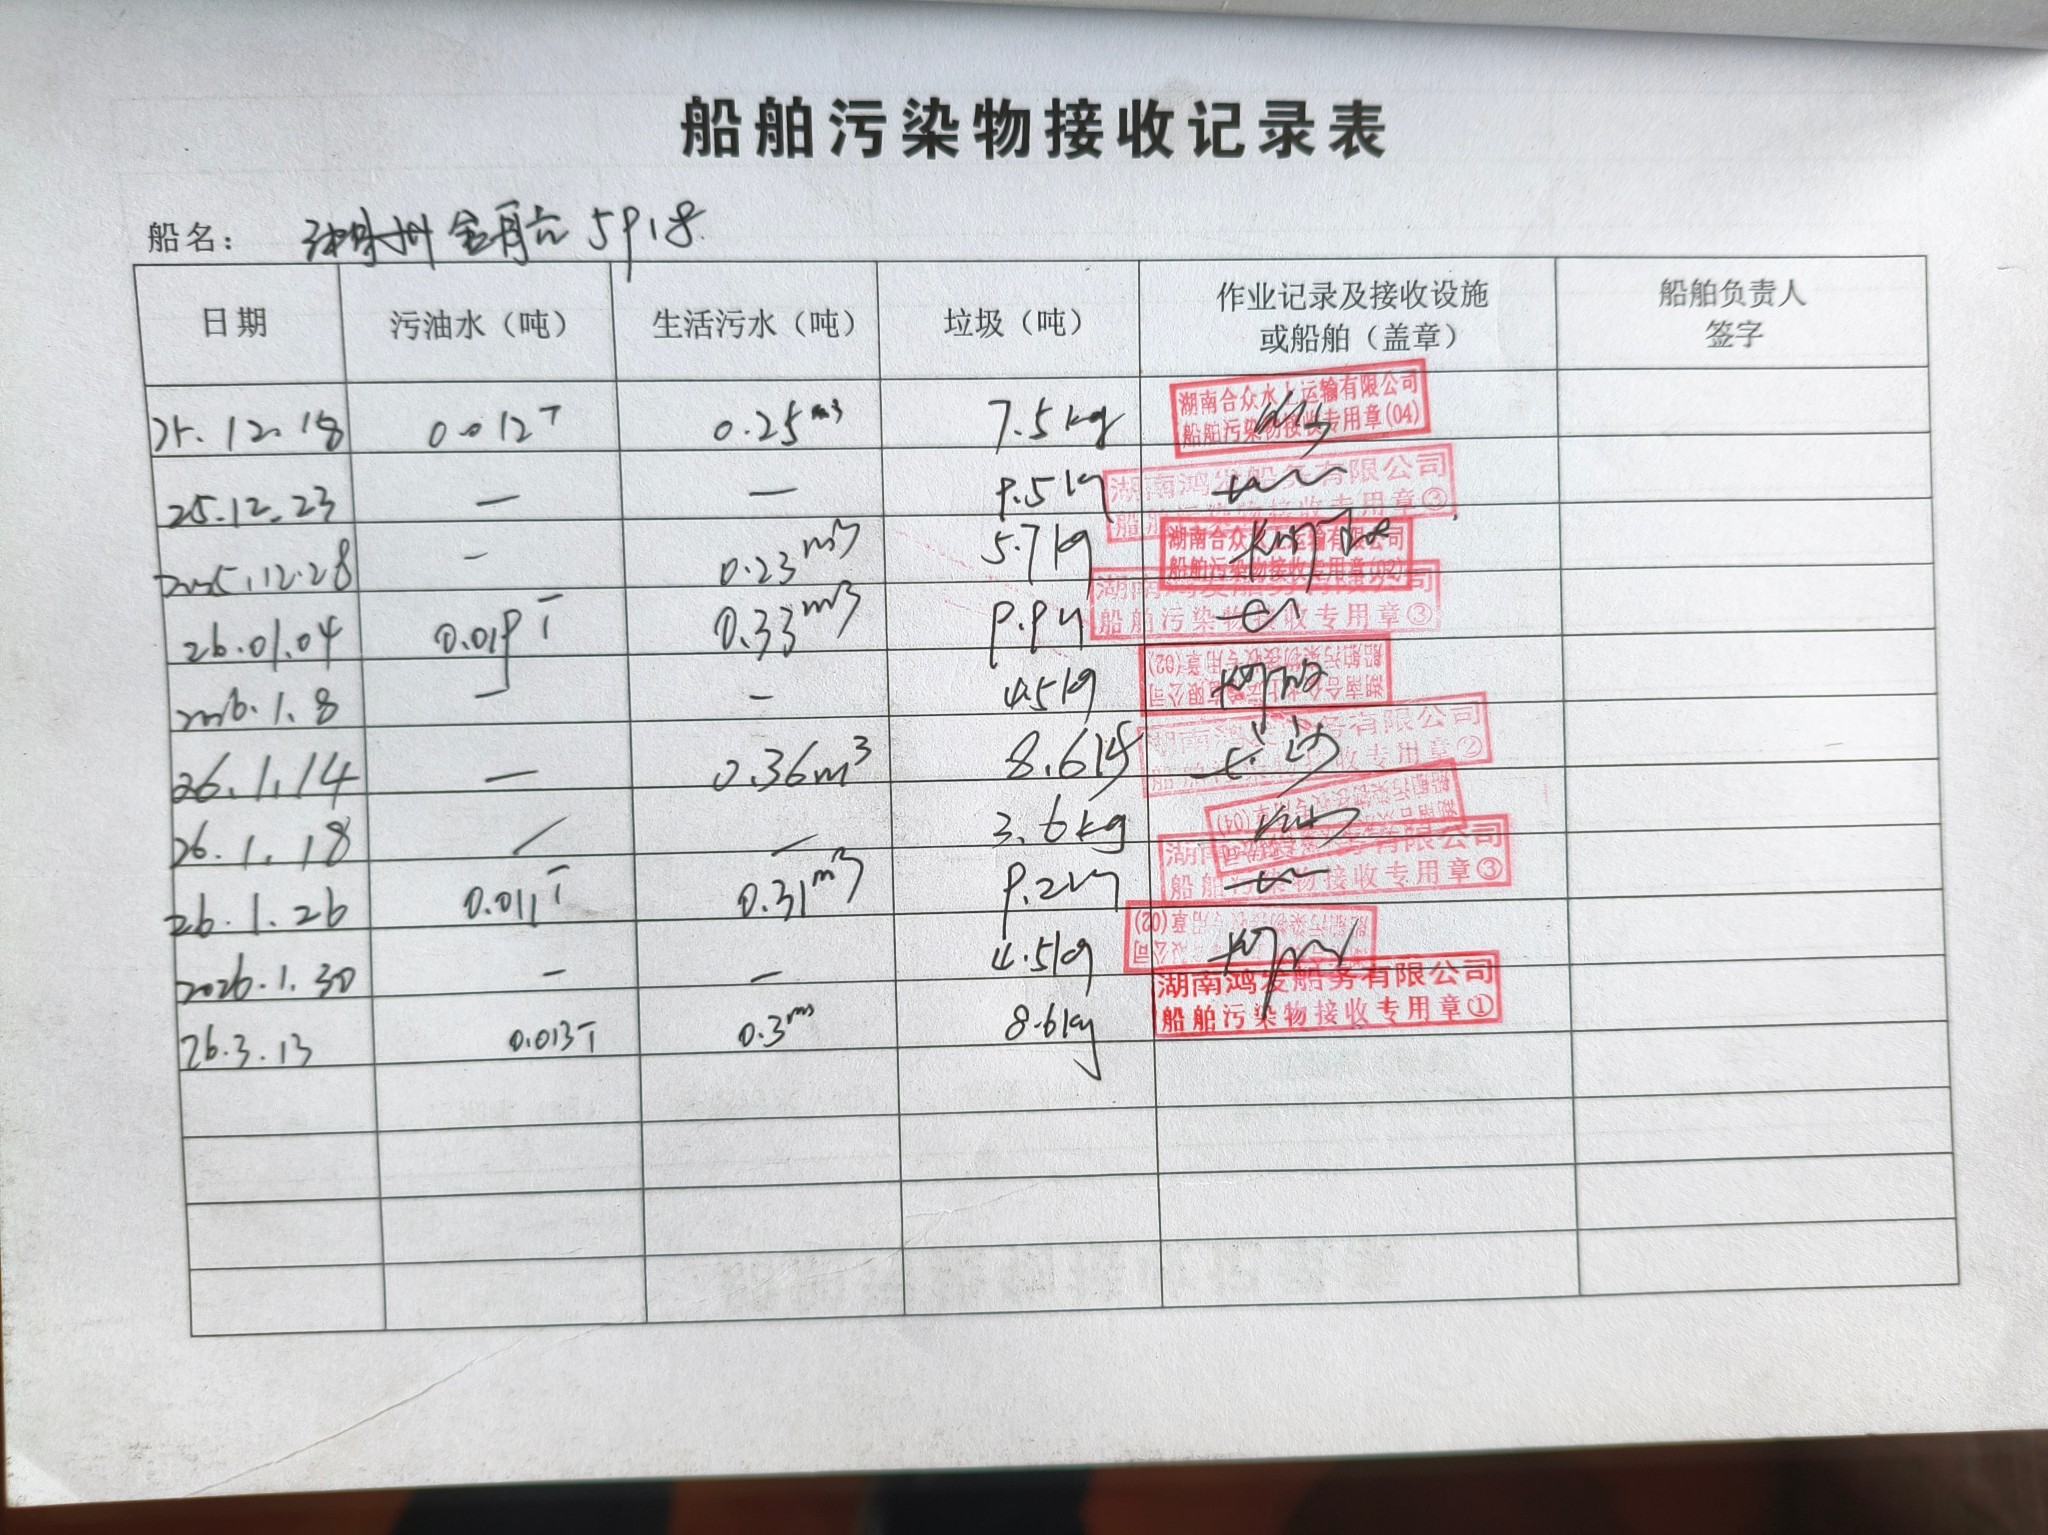 船舶污染物接收记录表
船名： 5918
日期 污油水（吨） 生活污水（吨） 垃圾（吨） 作业记录及接收设施或船舶（盖章） 船舶负责人签字
25.12.18 0.012T 0.25m3 7.5kg 湖南合众水上运输有限公司
船舶污染物接收专用章(04)
25.12.23 — — 9.5kg 湖南鸿发船务有限公司
船舶污染物接收专用章③
2025.12.28 — 0.23m3 5.7kg 湖南合众水上运输有限公司
船舶污染物接收专用章(02)
26.01.04 0.019T 0.33m3 9.9kg 湖南鸿发船务有限公司
船舶污染物接收专用章③
2026.1.8 — — 4.5kg 湖南合众水上运输有限公司
船舶污染物接收专用章(02)
26.1.14 — 0.36m3 8.6kg 湖南鸿发船务有限公司
船舶污染物接收专用章②
26.1.18 / — 3.6kg 船舶污染物接收专用章(04)
26.1.26 0.011T 0.31m3 9.2kg 湖南鸿发船务有限公司
船舶污染物接收专用章③
2026.1.30 — — 4.5kg 船舶污染物接收专用章(02)
26.3.13 0.013T 0.3m3 8.6kg 湖南鸿发船务有限公司
船舶污染物接收专用章①